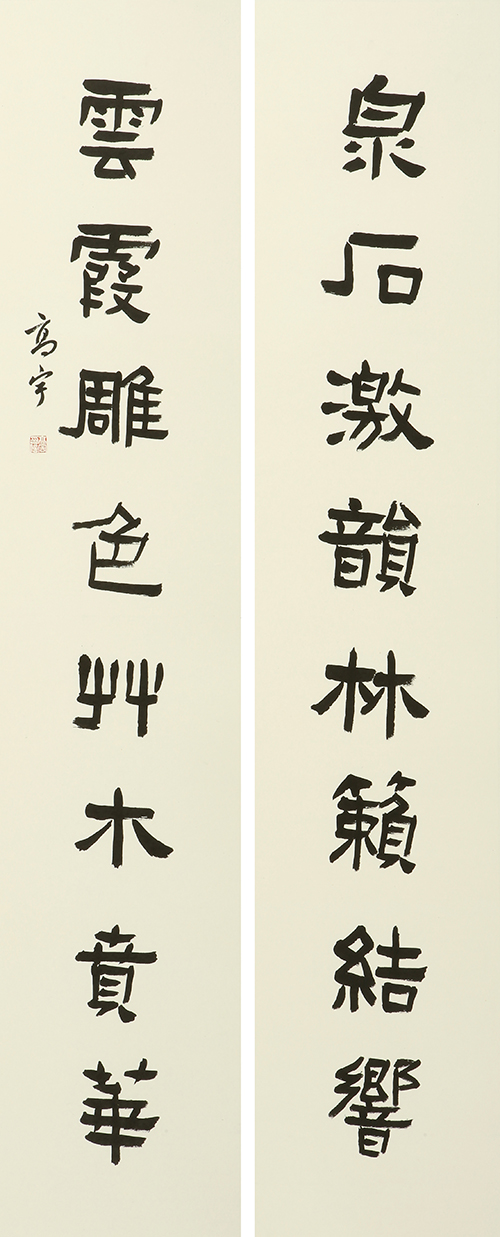 泉石激韻林籟結響
雲霞雕色艸木賁華
高宇